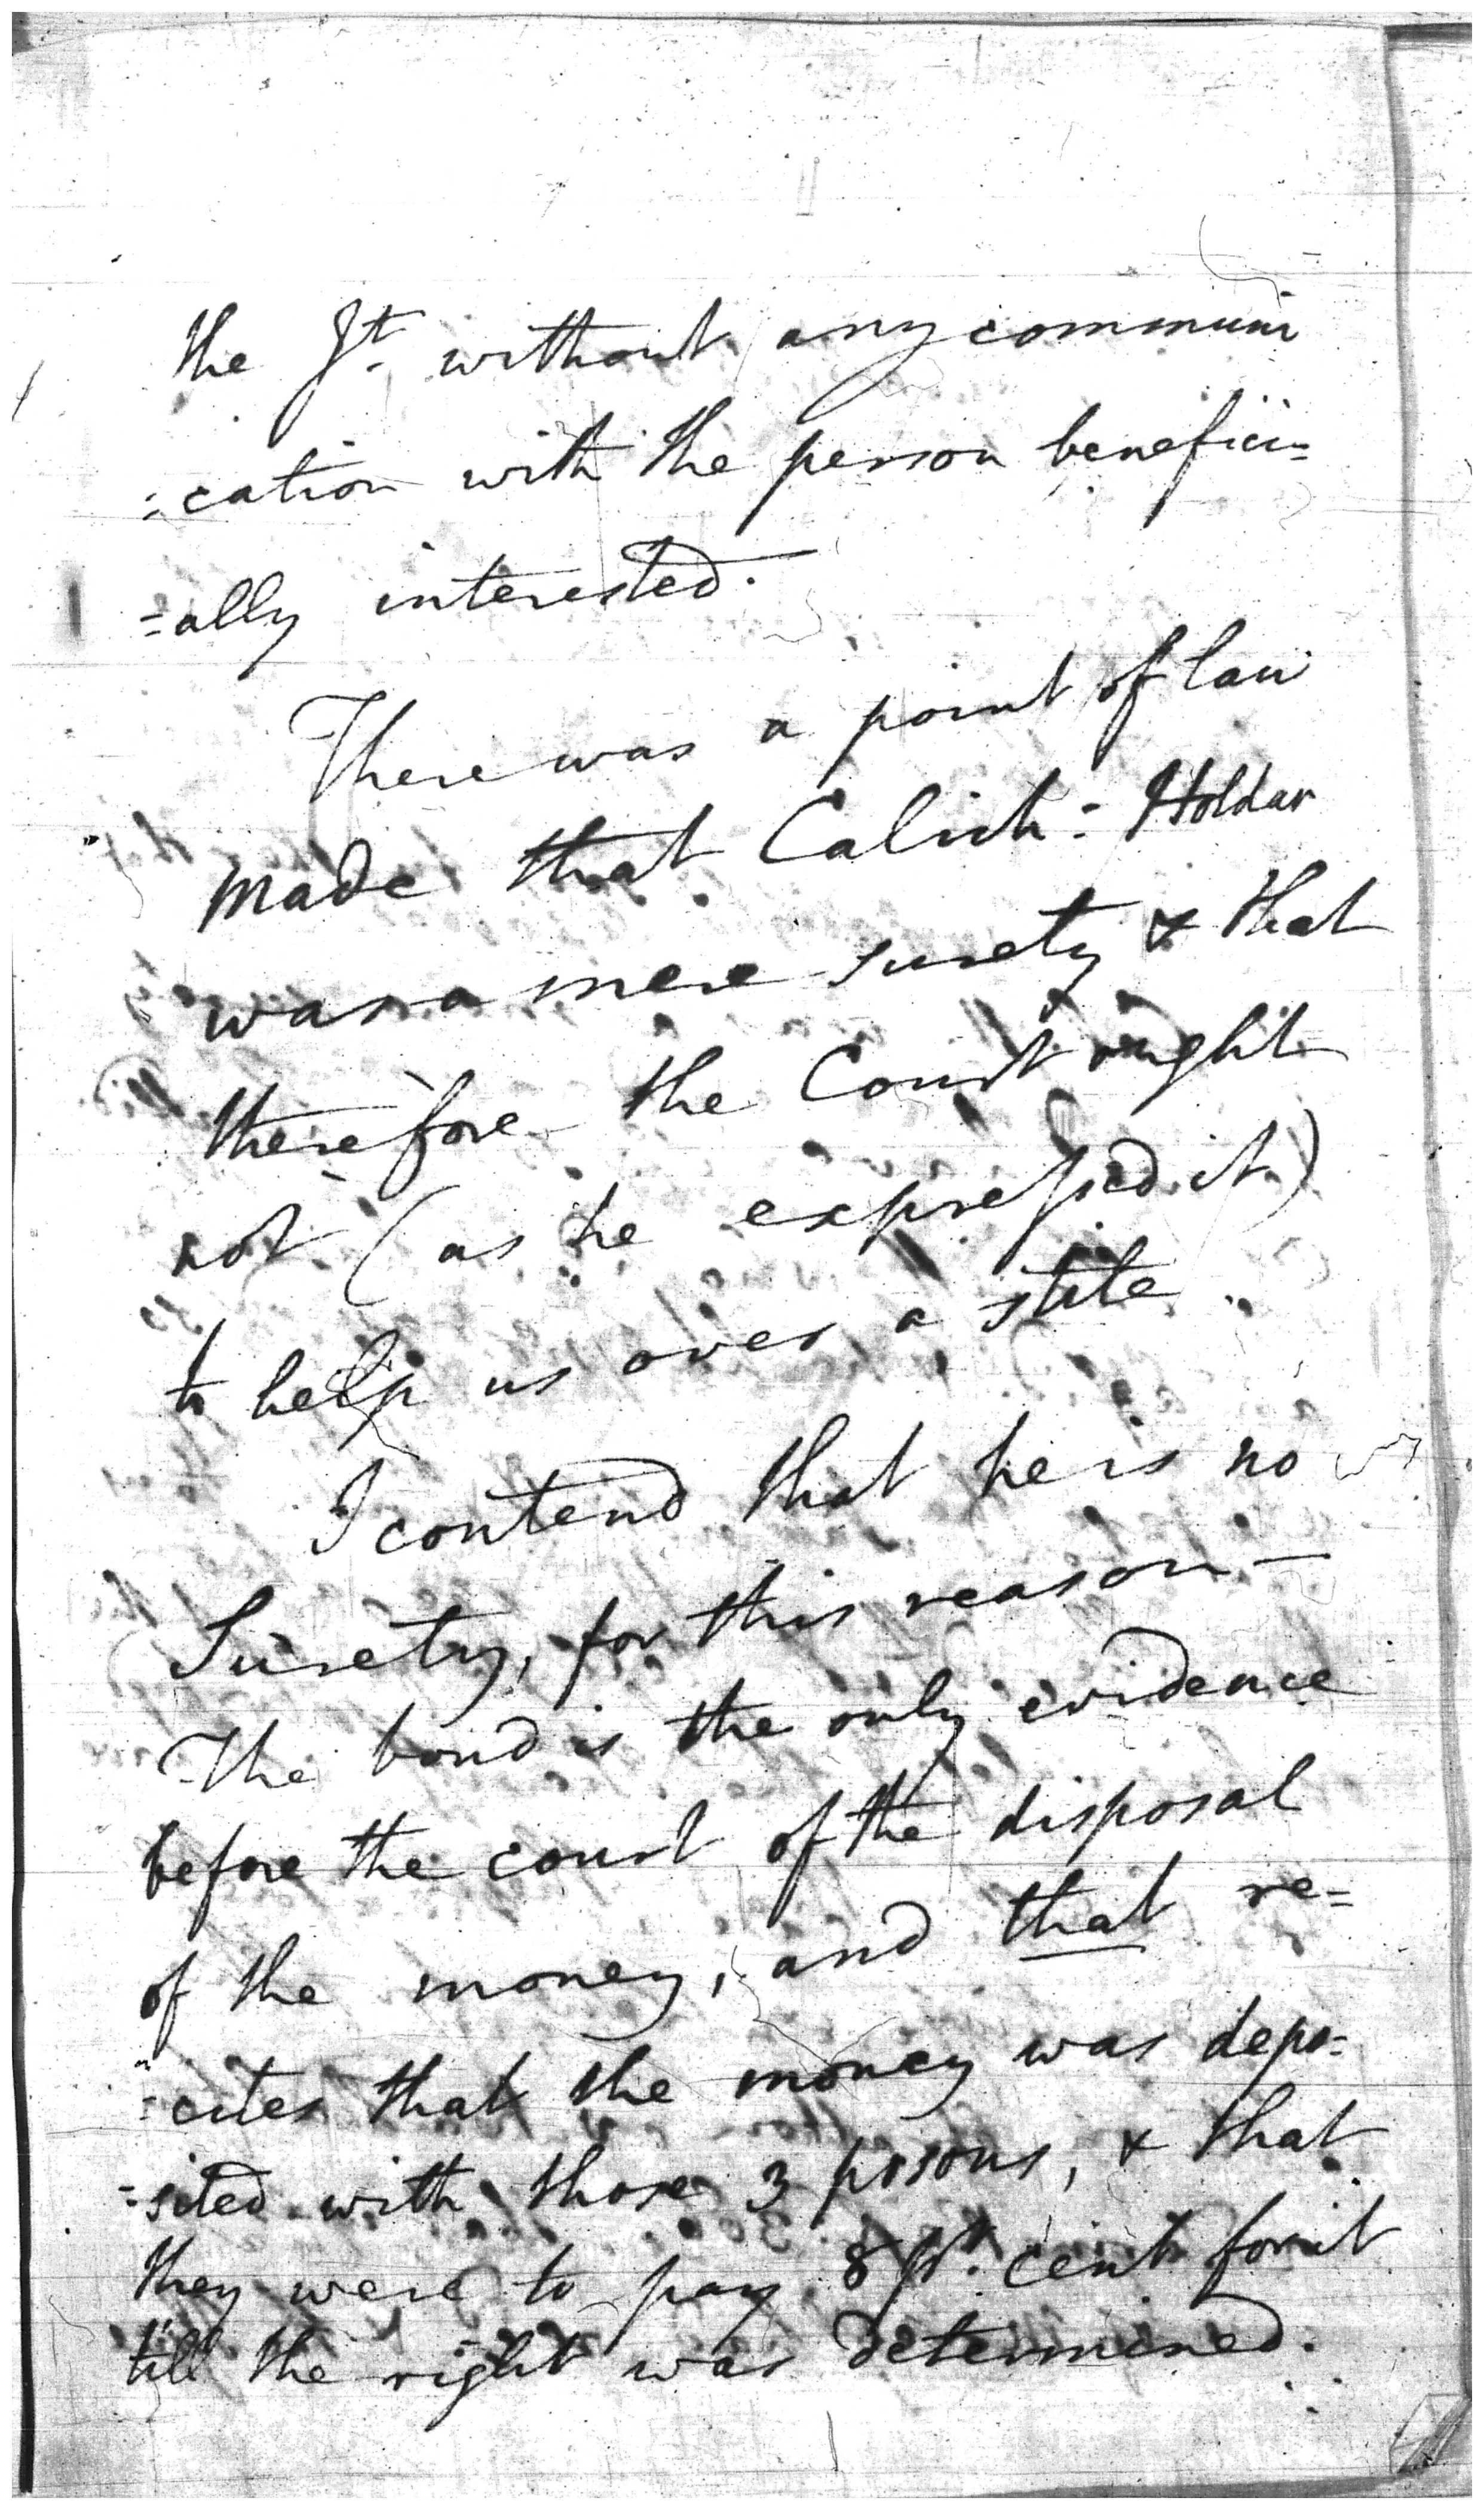 the Jt. without any communi
:cation with the person benefici=
=ally interested.
There was a point of law
made that Calich: Holdar
was a mere surety & that
therefore the Court ought
not (as he expressed it)
to help us over a stile
I contend that he is no
Surety, for this reason —
The bond is the only evidence
before the court of the disposal
of the money, and that re=
:cites that the money was depo=
=sited with those 3 psons, & that
they were to pay 8 pr. cent for it
till the right was determined.